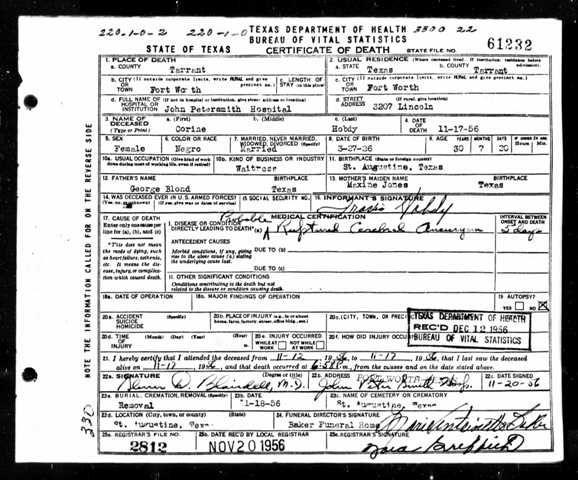 220-1-0-2 220-1-0 TEXAS DEPARTMENT OF HEALTH 3300 22
BUREAU OF VITAL STATISTICS
STATE OF TEXAS CERTIFICATE OF DEATH STATE FILE NO. 61232
1. PLACE OF DEATH 2. USUAL RESIDENCE (Where deceased lived. If institution: residence before admission)
a. COUNTY a. STATE b. COUNTY
Tarrant Texas Tarrant
b. CITY (If outside corporate limits, write RURAL and give precinct no.) c. LENGTH OF STAY (in this place) c. CITY (If outside corporate limits, write RURAL and give precinct no.)
OR TOWN Fort Worth Fort Worth
d. FULL NAME OF (If not in hospital or institution, give street address or location) d. STREET ADDRESS (If rural, give location)
HOSPITAL OR INSTITUTION John Petersmith Hospital 3207 Lincoln
3. NAME OF DECEASED (Type or Print) a. (First) b. (Middle) c. (Last) 4. DATE OF DEATH
Corine Hobdy 11-17-56
5. SEX 6. COLOR OR RACE 7. MARRIED, NEVER MARRIED, WIDOWED, DIVORCED (Specify) 8. DATE OF BIRTH 9. AGE
Female Negro Married 3-27-26 30 7 20
10a. USUAL OCCUPATION (Give kind of work done during most of working life, even if retired) 10b. KIND OF BUSINESS OR INDUSTRY 11. BIRTHPLACE (State or foreign country)
Waitress St. Augustine, Texas
12. FATHER'S NAME BIRTHPLACE 13. MOTHER'S MAIDEN NAME BIRTHPLACE
George Blond Texas Maxine Jones Texas
14. WAS DECEASED EVER IN U.S. ARMED FORCES? 15. SOCIAL SECURITY NO. 16. INFORMANT'S SIGNATURE
Hobdy
17. CAUSE OF DEATH Probable MEDICAL CERTIFICATION INTERVAL BETWEEN ONSET AND DEATH
Enter only one cause per line for (a), (b), and (c) I. DISEASE OR CONDITION DIRECTLY LEADING TO DEATH* (a) Ruptured Cerebral Aneurysm 5 days
*This does not mean the mode of dying, such as heart failure, asthenia, etc. It means the disease, injury, or complication which caused death.
ANTECEDENT CAUSES
Morbid conditions, if any, giving rise to the above cause (a) stating the underlying cause last.
DUE TO (b)
DUE TO (c)
II. OTHER SIGNIFICANT CONDITIONS
Conditions contributing to the death but not related to the disease or condition causing death.
18a. DATE OF OPERATION 18b. MAJOR FINDINGS OF OPERATION 19. AUTOPSY?
YES NO
20a. ACCIDENT SUICIDE HOMICIDE (Specify) 20b. PLACE OF INJURY (e.g., in or about home, farm, factory, street, office bldg., etc.) 20c. (CITY, TOWN, OR PRECINCT
TEXAS DEPARTMENT OF HEALTH
REC'D DEC 12 1956
BUREAU OF VITAL STATISTICS
20d. TIME OF INJURY (Month) (Day) (Year) (Hour) 20e. INJURY OCCURRED WHILE AT WORK NOT WHILE AT WORK 20f. HOW DID INJURY OCCUR
21. I hereby certify that I attended the deceased from 11-12 1956 to 11-17 1956, that I last saw the deceased
alive on 11-17 1956, and that death occurred at m., from the causes and on the date stated above.
22a. SIGNATURE (Degree or title) 22b. ADDRESS FORT WORTH 22c. DATE SIGNED
M.D. John Peter Smith Hosp. 11-20-56
23a. BURIAL, CREMATION, REMOVAL (Specify) 23b. DATE 23c. NAME OF CEMETERY OR CREMATORY
Removal 1-18-56 St. Augustine, Texas
23d. LOCATION (City, town, or county) (State) 24. FUNERAL DIRECTOR'S SIGNATURE
St. Augustine, Texas Baker Funeral Home
25a. REGISTRAR'S FILE NO. 25b. DATE REC'D BY LOCAL REGISTRAR 25c. REGISTRAR'S SIGNATURE
2812 NOV 20 1956
NOTE THE INFORMATION CALLED FOR ON THE REVERSE SIDE
330